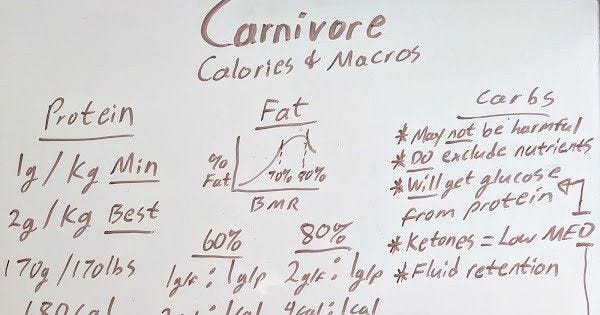 Carnivore
Calories & Macros
Protein
1g/Kg Min
2g/Kg Best
170g/170lbs
Fat
% Fat
70% 80%
BMR
60% 80%
1g/F : 1g/P 2g/F : 1g/P
Carbs
* May not be harmful
* DO exclude nutrients
* Will get glucose
from protein
* Ketones = Low MED
* Fluid retention